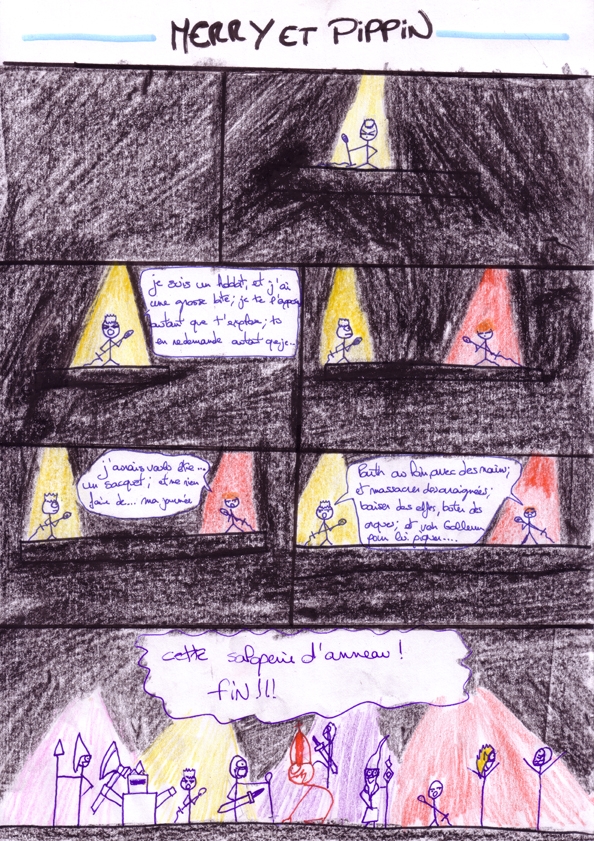 MERRY ET PIPPIN
je suis un Hobbit, et j'ai
une grosse bite; je te l'
autant que t'explose; tu
en redemande autant que je...
j'aurais voulu être...
un sacquet; et ne rien
faire de... ma journée
Partir au loin avec des nains;
et massacrer des araignées;
baiser des elfes, buter des
orques; et voir Gollum
pour lui piquer....
cette saloperie d'anneau!
fin!!!